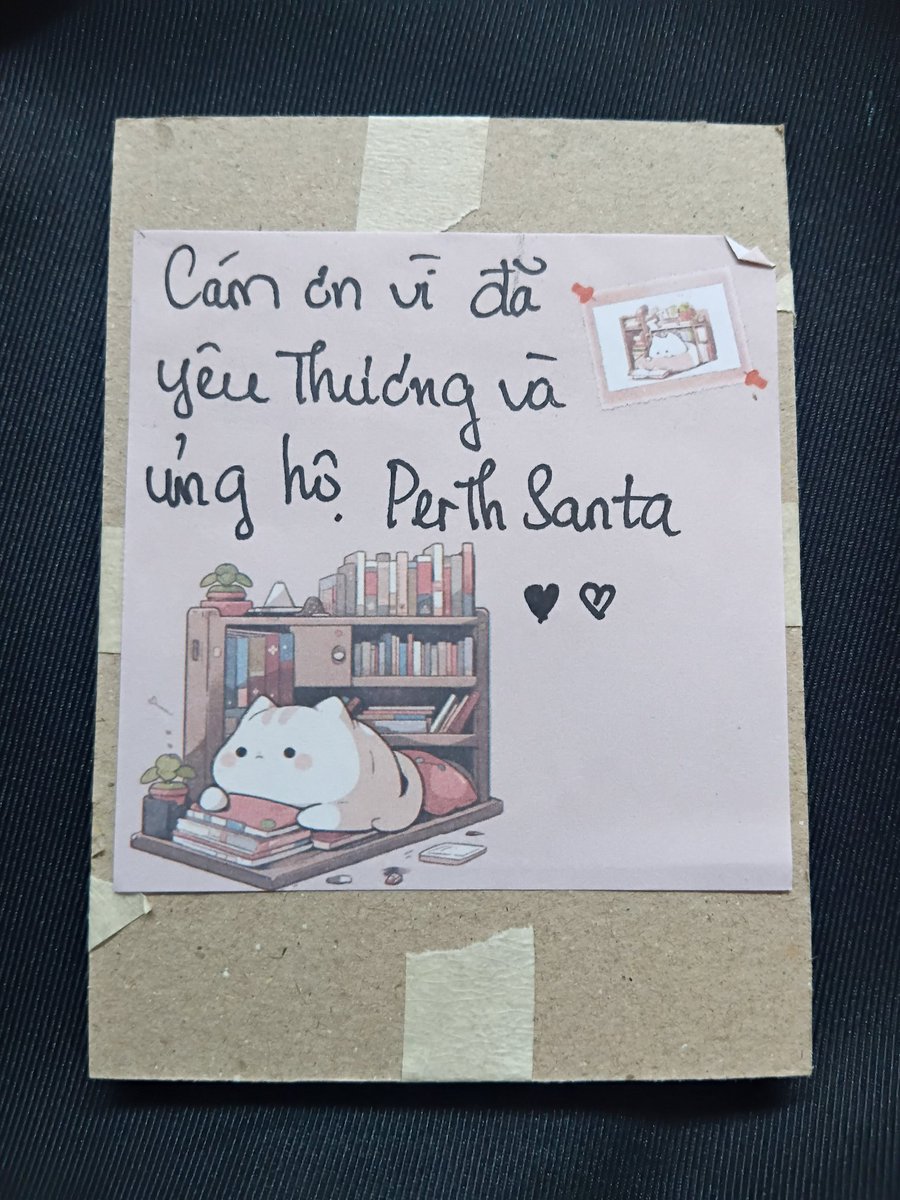 Cám ơn vì đã
yêu Thương và
ủng hộ. Perth Santa